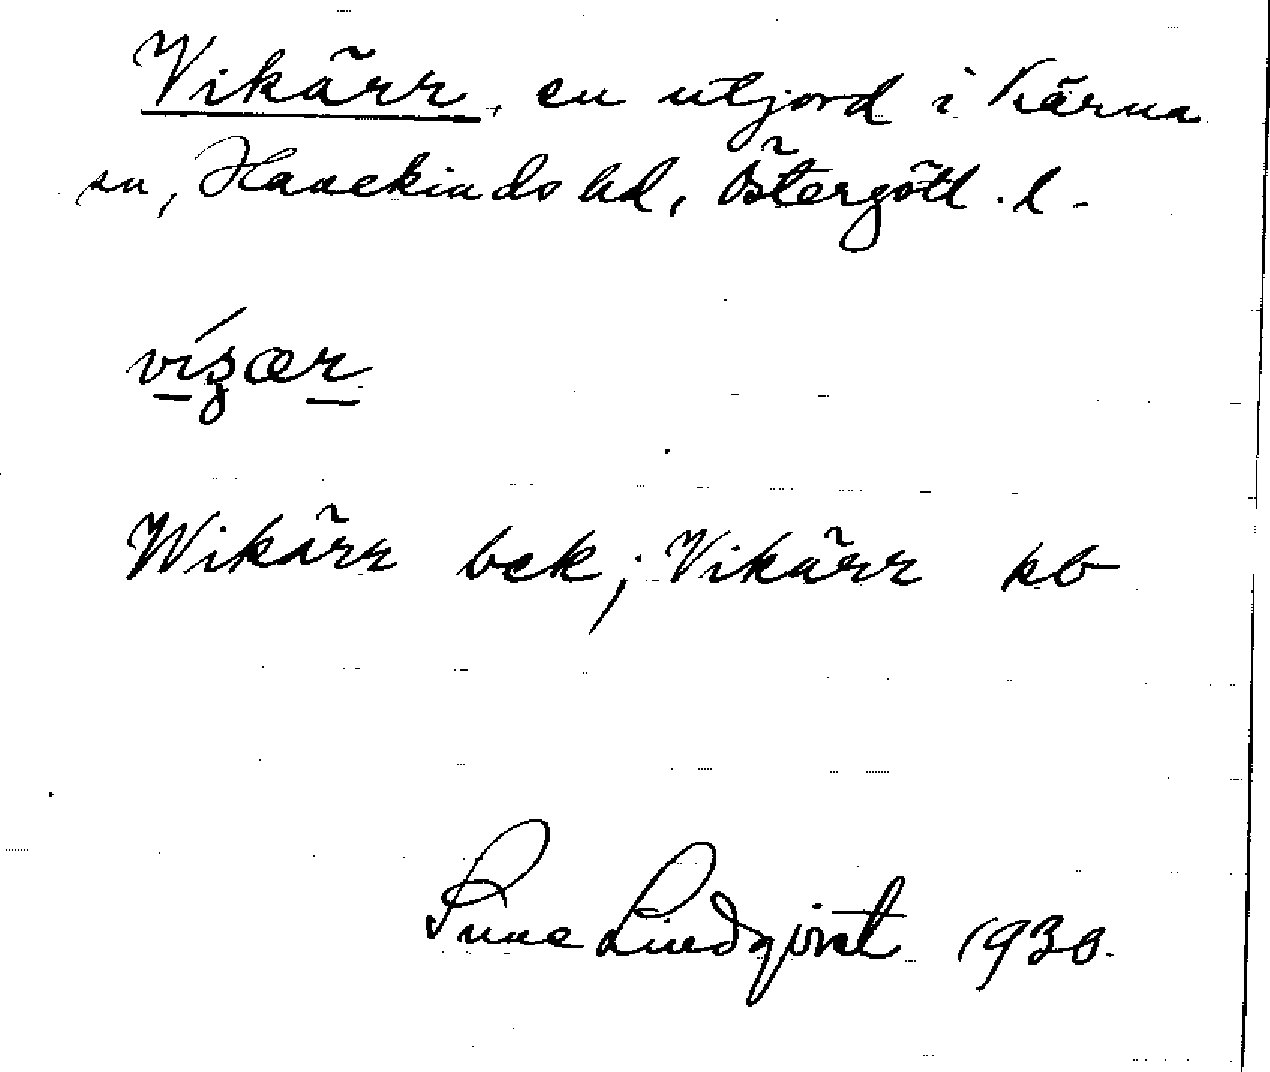 Vikärr, en utjord i Kärna
sn, Hanekinds hd, Östergötl. l.
vígær
Wikärr bek; Vikärr kb
Sune Lindqvist 1930.